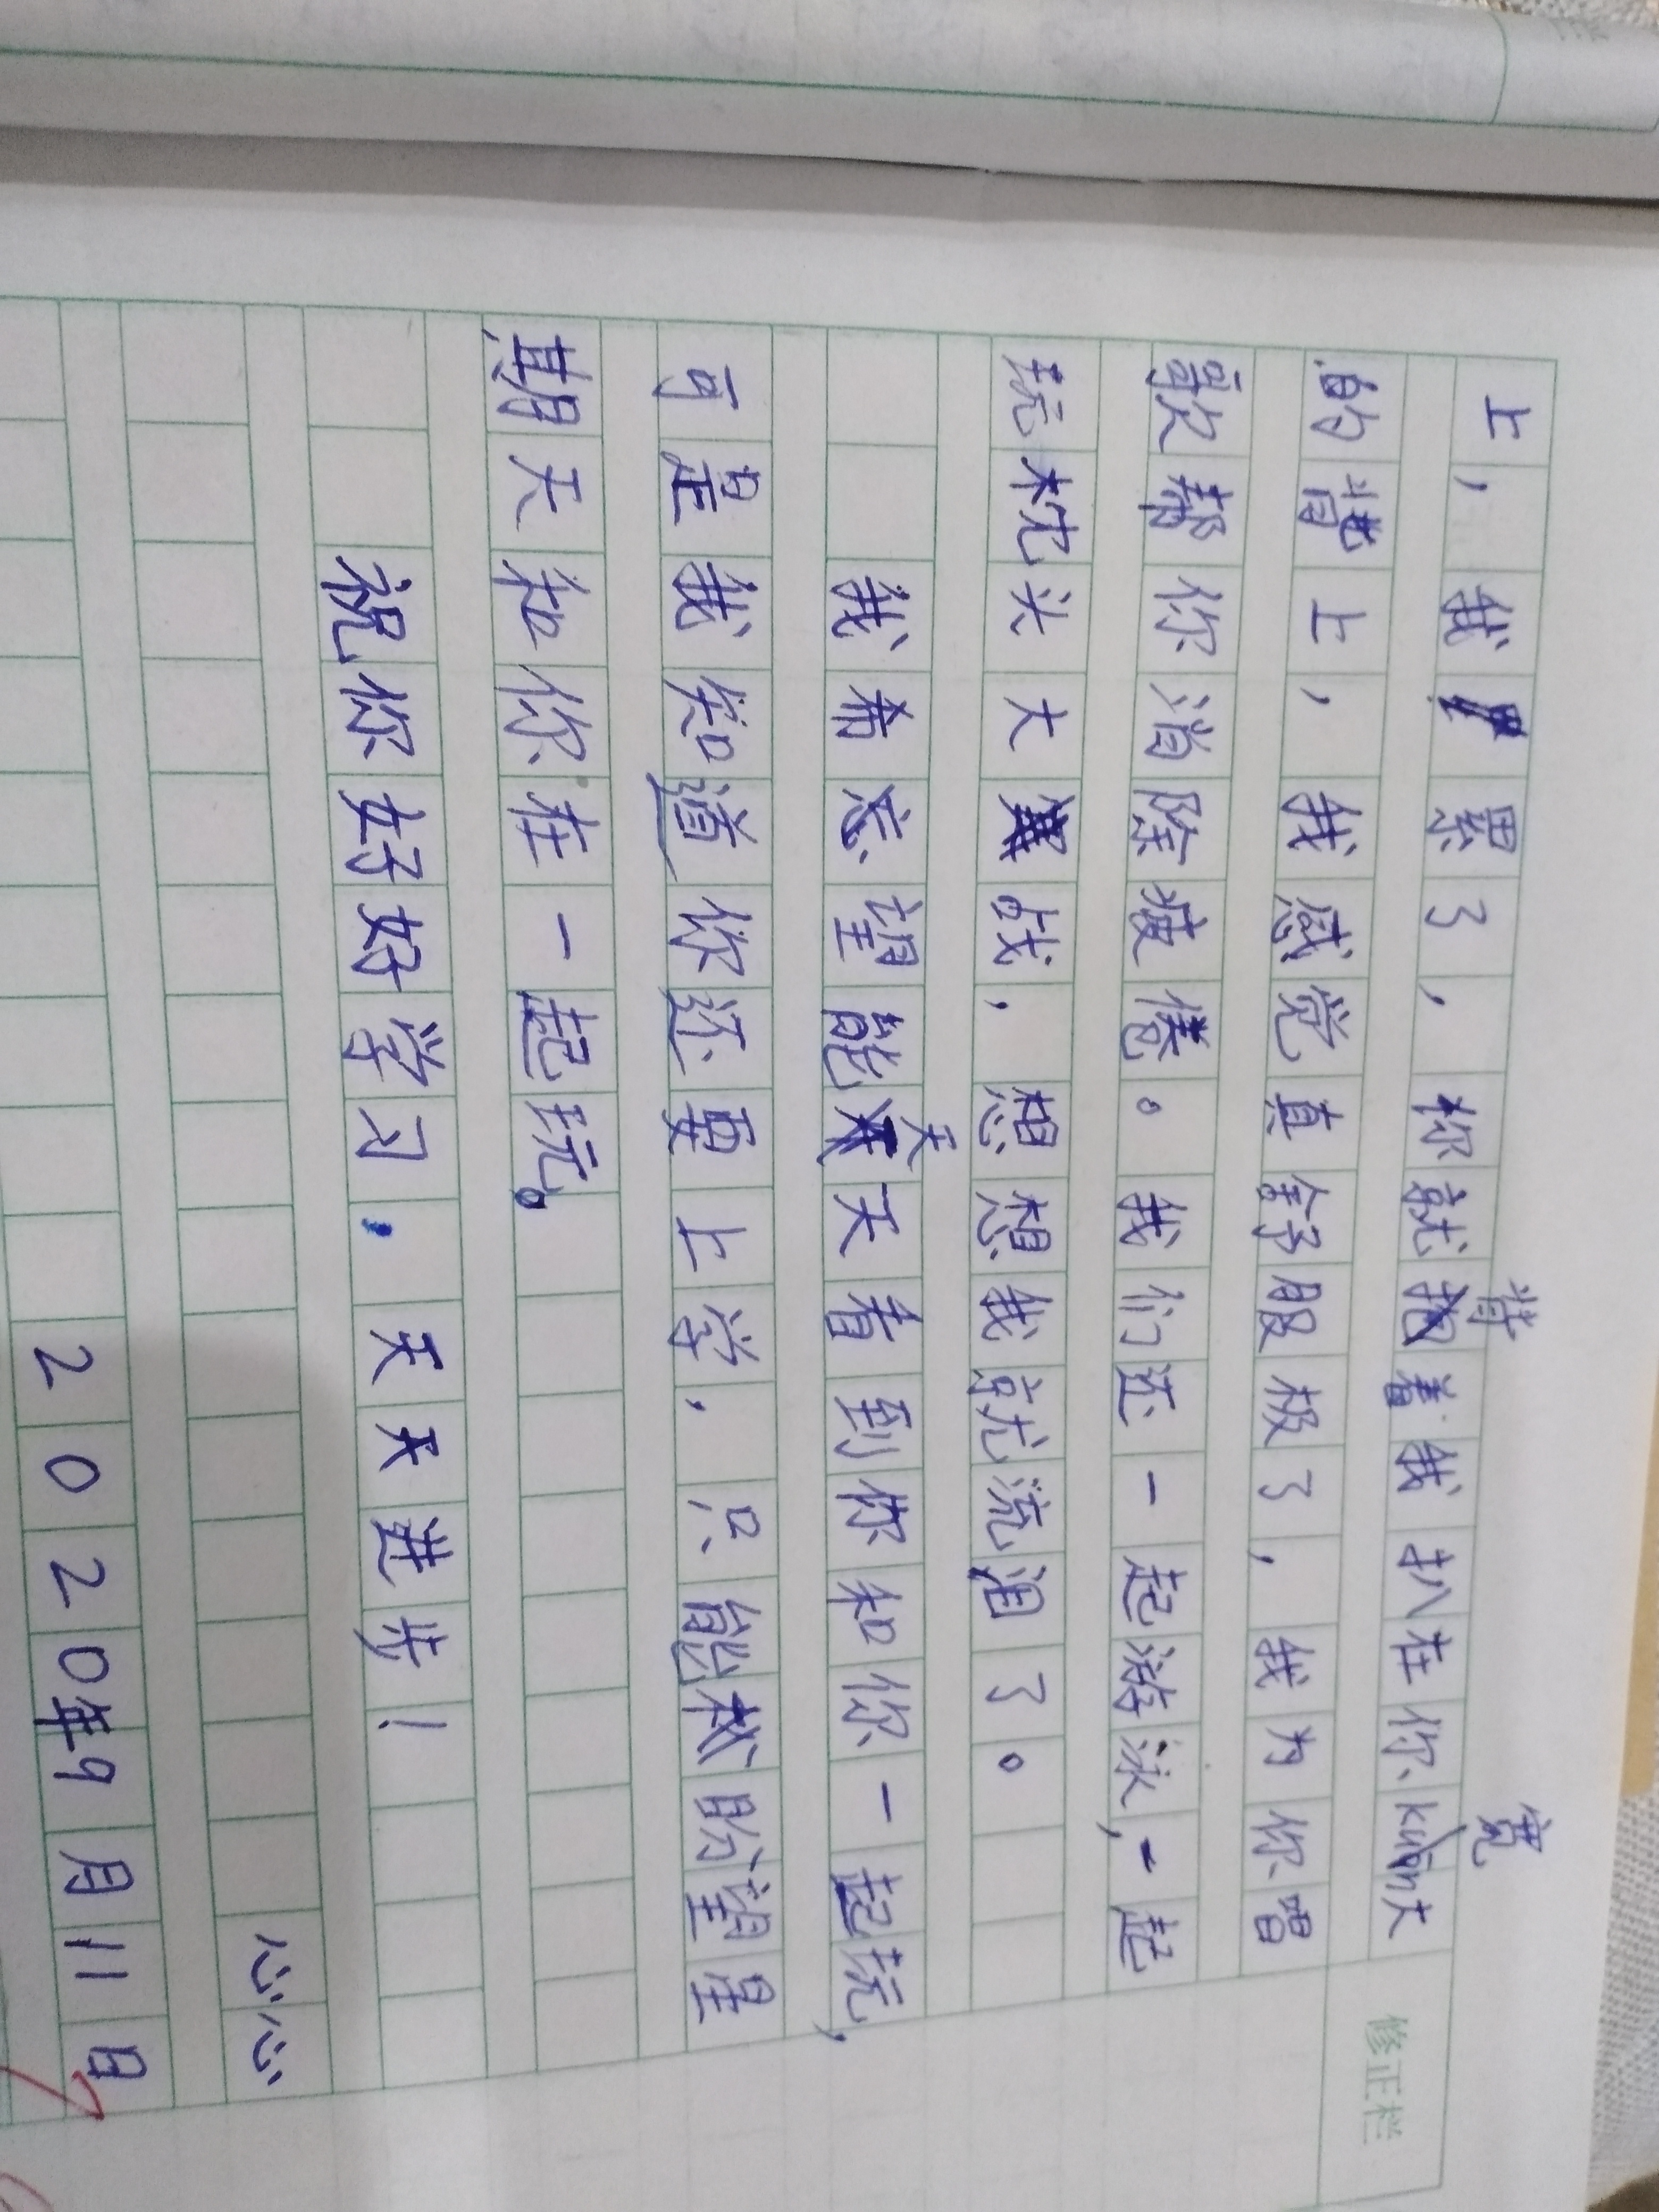 上，我累了，你就背着我扒在你宽大
的背上，我感觉真舒服极了，我为你唱
歌帮你消除疲倦。我们还一起游泳，一起
玩枕头大战，想想我就流泪了。
我希望能天天看到你和你一起玩，
可是我知道你还要上学，只能盼望星
期天和你在一起玩。
祝你好好学习，天天进步！
心心
2020年9月11日
修正栏